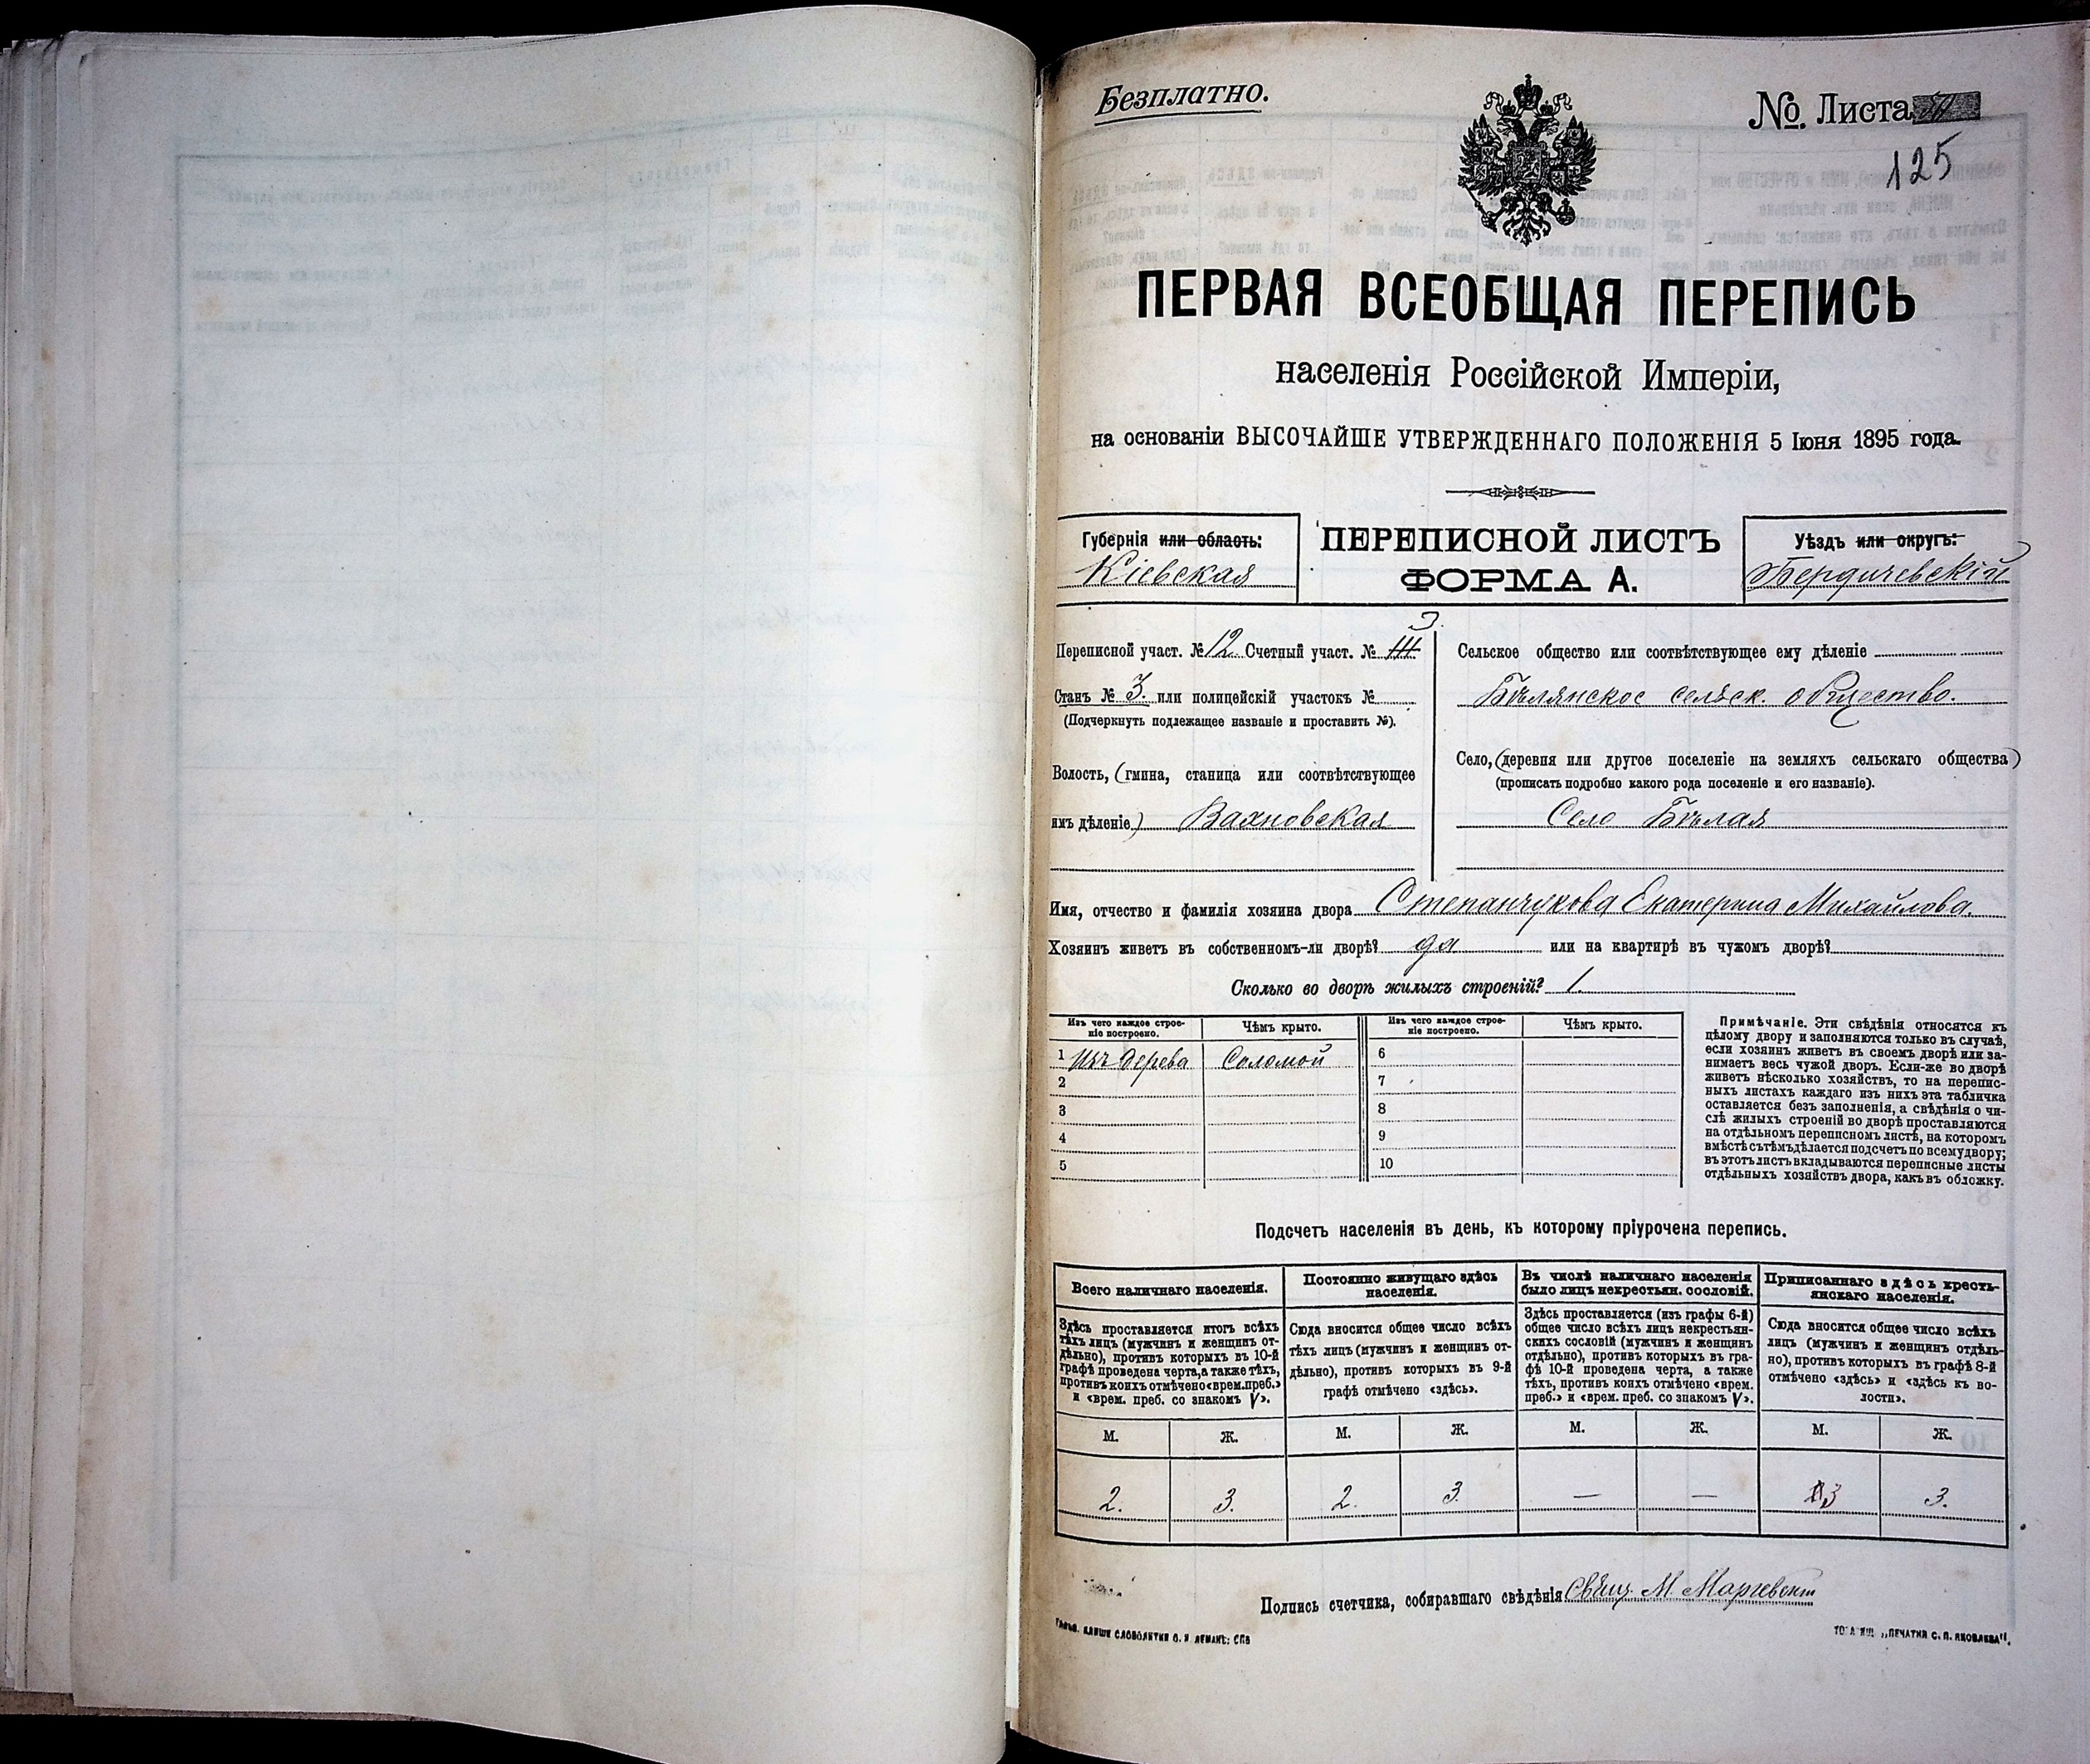 Безплатно.
№ Листа
125
ПЕРВАЯ ВСЕОБЩАЯ ПЕРЕПИСЬ
населенія Россійской Имперіи,
на основаніи ВЫСОЧАЙШЕ УТВЕРЖДЕННАГО ПОЛОЖЕНІЯ 5 Іюня 1895 года.
Губернія или область:
Кіевская
ПЕРЕПИСНОЙ ЛИСТЪ
ФОРМА А.
Уѣздъ или округъ:
Бердичевскій
3.
Переписной участ. № 12 Счетный участ. № III
Станъ № 3. или полицейскій участокъ №
(Подчеркнуть подлежащее названіе и проставить №).
Волость, (гмина, станица или соотвѣтствующее
имъ дѣленіе) Вахновская
Сельское общество или соотвѣтствующее ему дѣленіе
Бѣлянское сельск. общество.
Село, (деревня или другое поселеніе на земляхъ сельскаго общества)
(прописать подробно какого рода поселеніе и его названіе).
Село Бѣлая
Имя, отчество и фамилія хозяина двора Степанчукова Екатерина Михайлова.
Хозяинъ живетъ въ собственномъ-ли дворѣ? да или на квартирѣ въ чужомъ дворѣ?
Сколько во дворѣ жилыхъ строеній? 1.
Изъ чего каждое строе-
ніе построено.
Чѣмъ крыто.
1 Изъ дерева Соломой
2
3
4
5
Изъ чего каждое строе-
ніе построено.
Чѣмъ крыто.
6
7
8
9
10
Примѣчаніе. Эти свѣдѣнія относятся къ
цѣлому двору и заполняются только въ случаѣ,
если хозяинъ живетъ въ своемъ дворѣ или за-
нимаетъ весь чужой дворъ. Если-же во дворѣ
живетъ нѣсколько хозяйствъ, то на перепис-
ныхъ листахъ каждаго изъ нихъ эта табличка
оставляется безъ заполненія, а свѣдѣнія о чи-
слѣ жилыхъ строеній во дворѣ проставляются
на отдѣльномъ переписномъ листѣ, на которомъ
вмѣстѣ съ тѣмъ дѣлается подсчетъ по всему двору;
въ этотъ листъ вкладываются переписные листы
отдѣльныхъ хозяйствъ двора, какъ въ обложку.
Подсчетъ населенія въ день, къ которому пріурочена перепись.
Всего наличнаго населенія.
Здѣсь проставляется итогъ всѣхъ
тѣхъ лицъ (мужчинъ и женщинъ от-
дѣльно), противъ которыхъ въ 10-й
графѣ проведена черта, а также тѣхъ,
противъ коихъ отмѣчено «врем. преб.»
и «врем. преб. со знакомъ V».
М. Ж.
2. 3.
Постоянно живущаго здѣсь
населенія.
Сюда вносится общее число всѣхъ
тѣхъ лицъ (мужчинъ и женщинъ от-
дѣльно), противъ которыхъ въ 9-й
графѣ отмѣчено «здѣсь».
М. Ж.
2. 3.
Въ числѣ наличнаго населенія
было лицъ некрестьян. сословій.
Здѣсь проставляется (изъ графы 6-й)
общее число всѣхъ лицъ некрестьян-
скихъ сословій (мужчинъ и женщинъ
отдѣльно), противъ которыхъ въ гра-
фѣ 10-й проведена черта, а также
тѣхъ, противъ коихъ отмѣчено «врем.
преб.» и «врем. преб. со знакомъ V».
М. Ж.
— —
Приписаннаго здѣсь кресть-
янскаго населенія.
Сюда вносится общее число всѣхъ
лицъ (мужчинъ и женщинъ отдѣль-
но), противъ которыхъ въ графѣ 8-й
отмѣчено «здѣсь» и «здѣсь къ во-
лости».
М. Ж.
3 3.
Подпись счетчика, собиравшаго свѣдѣнія Свящ. М.
КЛИШЕ СЛОВОЛИТНИ О. И. ЛЕМАНЪ: СПБ
„ПЕЧАТНИ С. П. ЯКОВЛЕВА“.